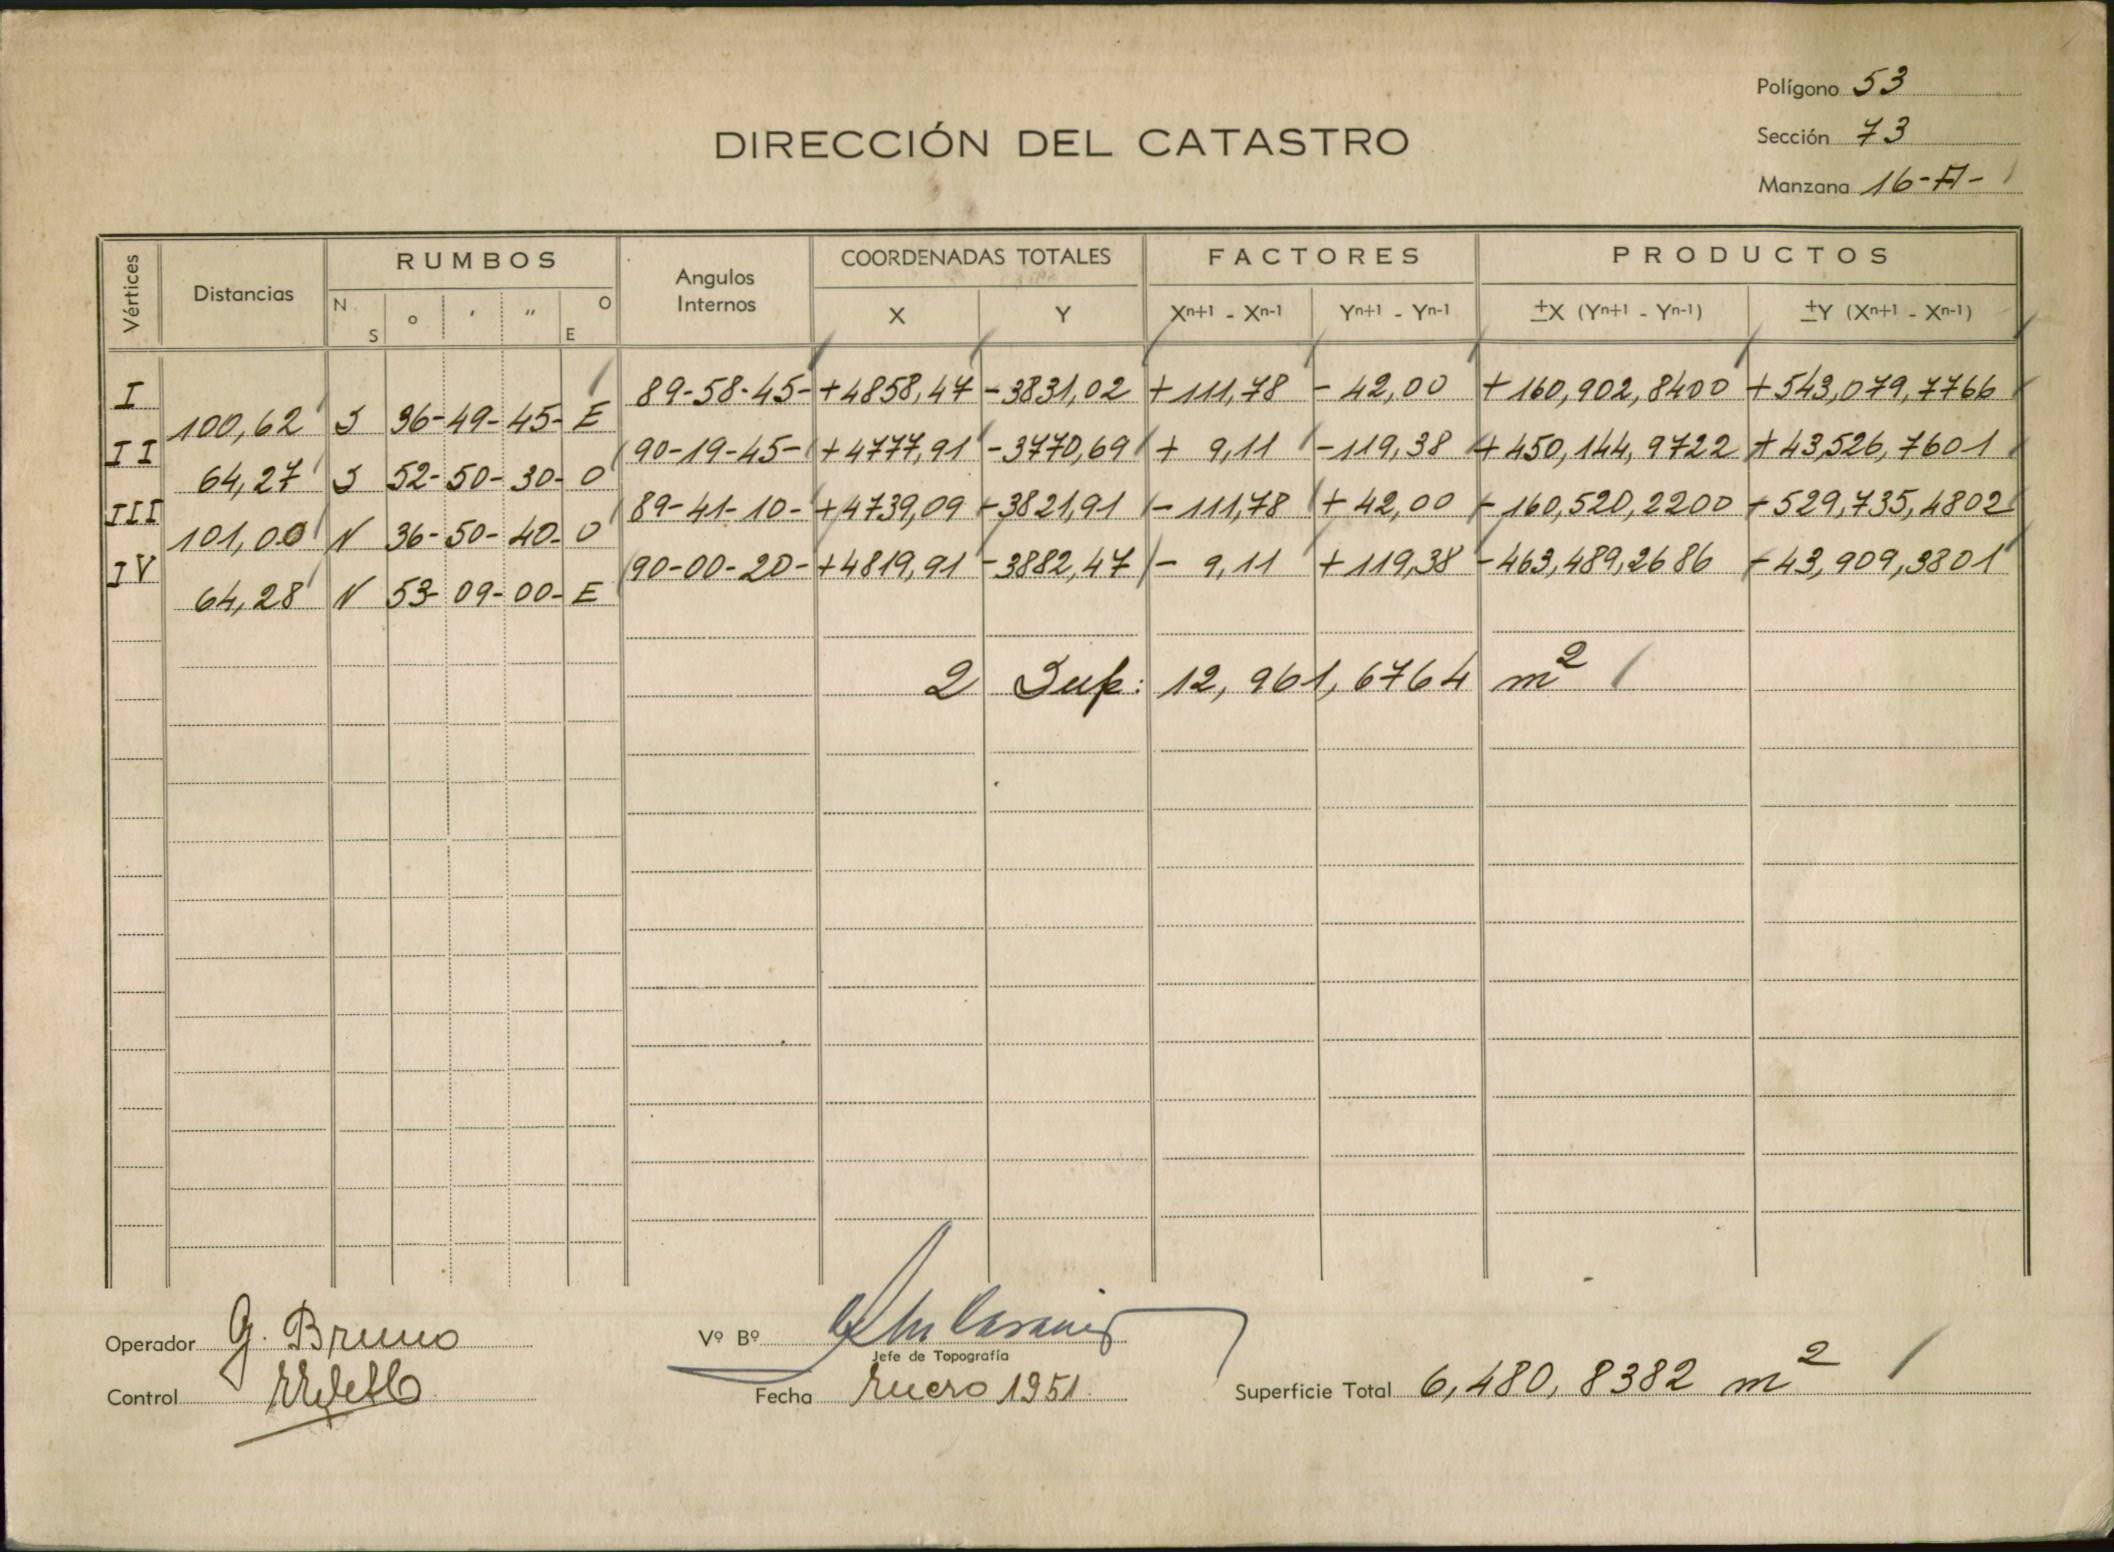 Polígono 53
DIRECCIÓN DEL CATASTRO
Sección 73
Manzana 16-A-
Vértices Distancias RUMBOS Angulos Internos COORDENADAS TOTALES FACTORES PRODUCTOS
N S o ' " O E X Y Xn+1 - Xn-1 Yn+1 - Yn-1 ±X (Yn+1 - Yn-1) ±Y (Xn+1 - Xn-1)
I 89-58-45- +4858,47 -3831,02 +111,78 - 42,00 +160,902,8400 +543,079,7766
100,62 S 36-49-45- E
II 90-19-45- +4777,91 -3770,69 + 9,11 -119,38 +450,144,9722 +43,526,7601
64,27 S 52-50-30- O
III 89-41-10- +4739,09 -3821,91 -111,78 +42,00 -160,520,2200 -529,735,4802
101,00 N 36-50-40- O
IV 90-00-20- +4819,91 -3882,47 - 9,11 +119,38 -463,489,2686 -43,909,3801
64,28 N 53-09-00- E
2 Sup: 12,961,6764 m²
Operador G. Bruno
Vº Bº
Jefe de Topografía
Control
Fecha Enero 1951.
Superficie Total 6,480,8382 m²